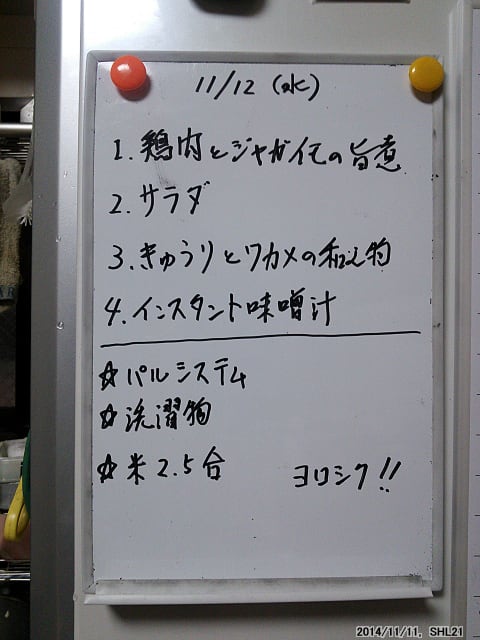 11/12 (水)
1. 鶏肉とジャガイモの旨煮
2. サラダ
3. きゅうりとワカメの和え物
4. インスタント味噌汁
☆パルシステム
☆洗濯物
☆米2.5合 ヨロシク!!
2014/11/11, SHL21